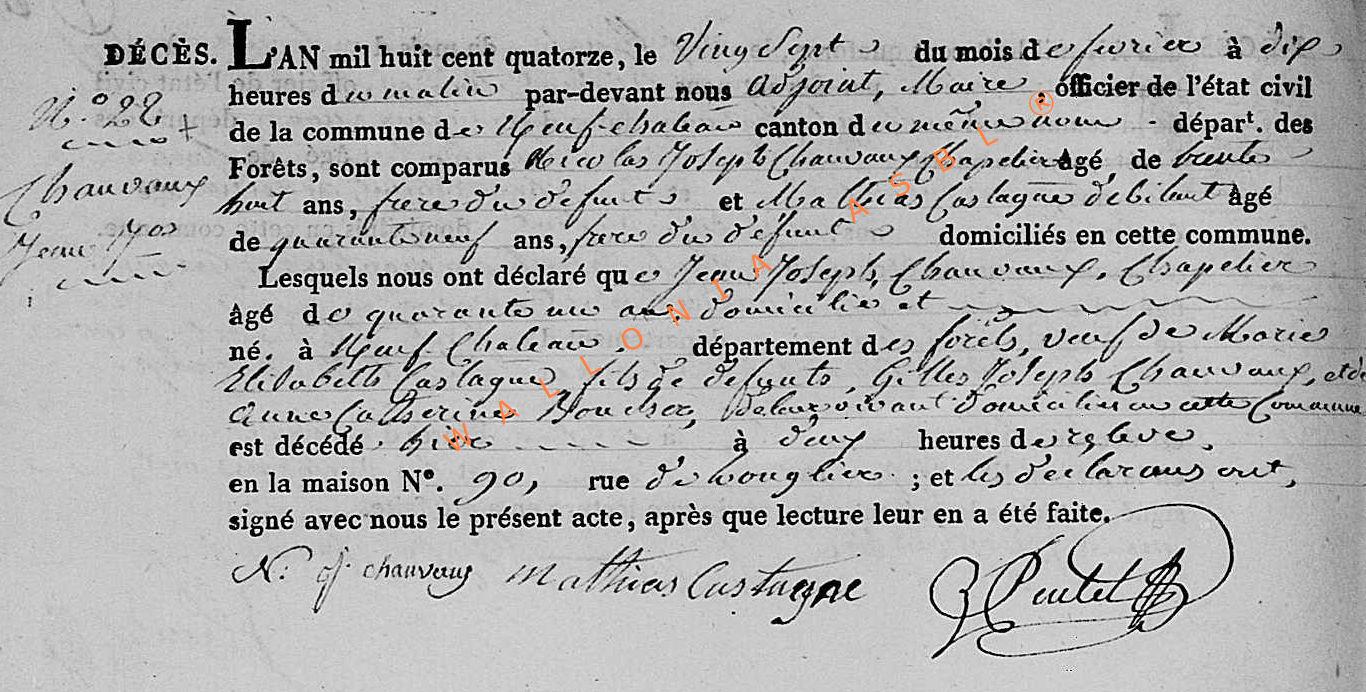 DÉCÈS. L'AN mil huit cent quatorze, le Vingt Sept du mois de fevrier à dix
N.o 22
heures du matin par-devant nous adjoint, Maire, officier de l'état civil
de la commune de Neuf-chateau canton du même nom - départ. des
Forêts, sont comparus Nicolas Joseph Chauvaux Chapelier âgé de trente
Chauvaux
huit ans, frere du defunt et Mathias Castagne debitant âgé
Jean Jos
de quarante neuf ans, frere du defunt domiciliés en cette commune.
Lesquels nous ont déclaré que Jean Joseph Chauvaux, Chapelier
âgé de quarante un ans domicilié et
né à Neuf Chateau, département des forêts, veuf de Marie
Elisabeth Castagne, fils de defunts, Gilles Joseph Chauvaux, et de
anne Catherine de leur vivant domicilies en cette Commune
est décédé hier à deux heures de releve,
en la maison N.o 90, rue de ; et les declarans ont,
signé avec nous le présent acte, après que lecture leur en a été faite.
N. J. chauvaux Mathias Castagne
WALLONIA ASBL ®